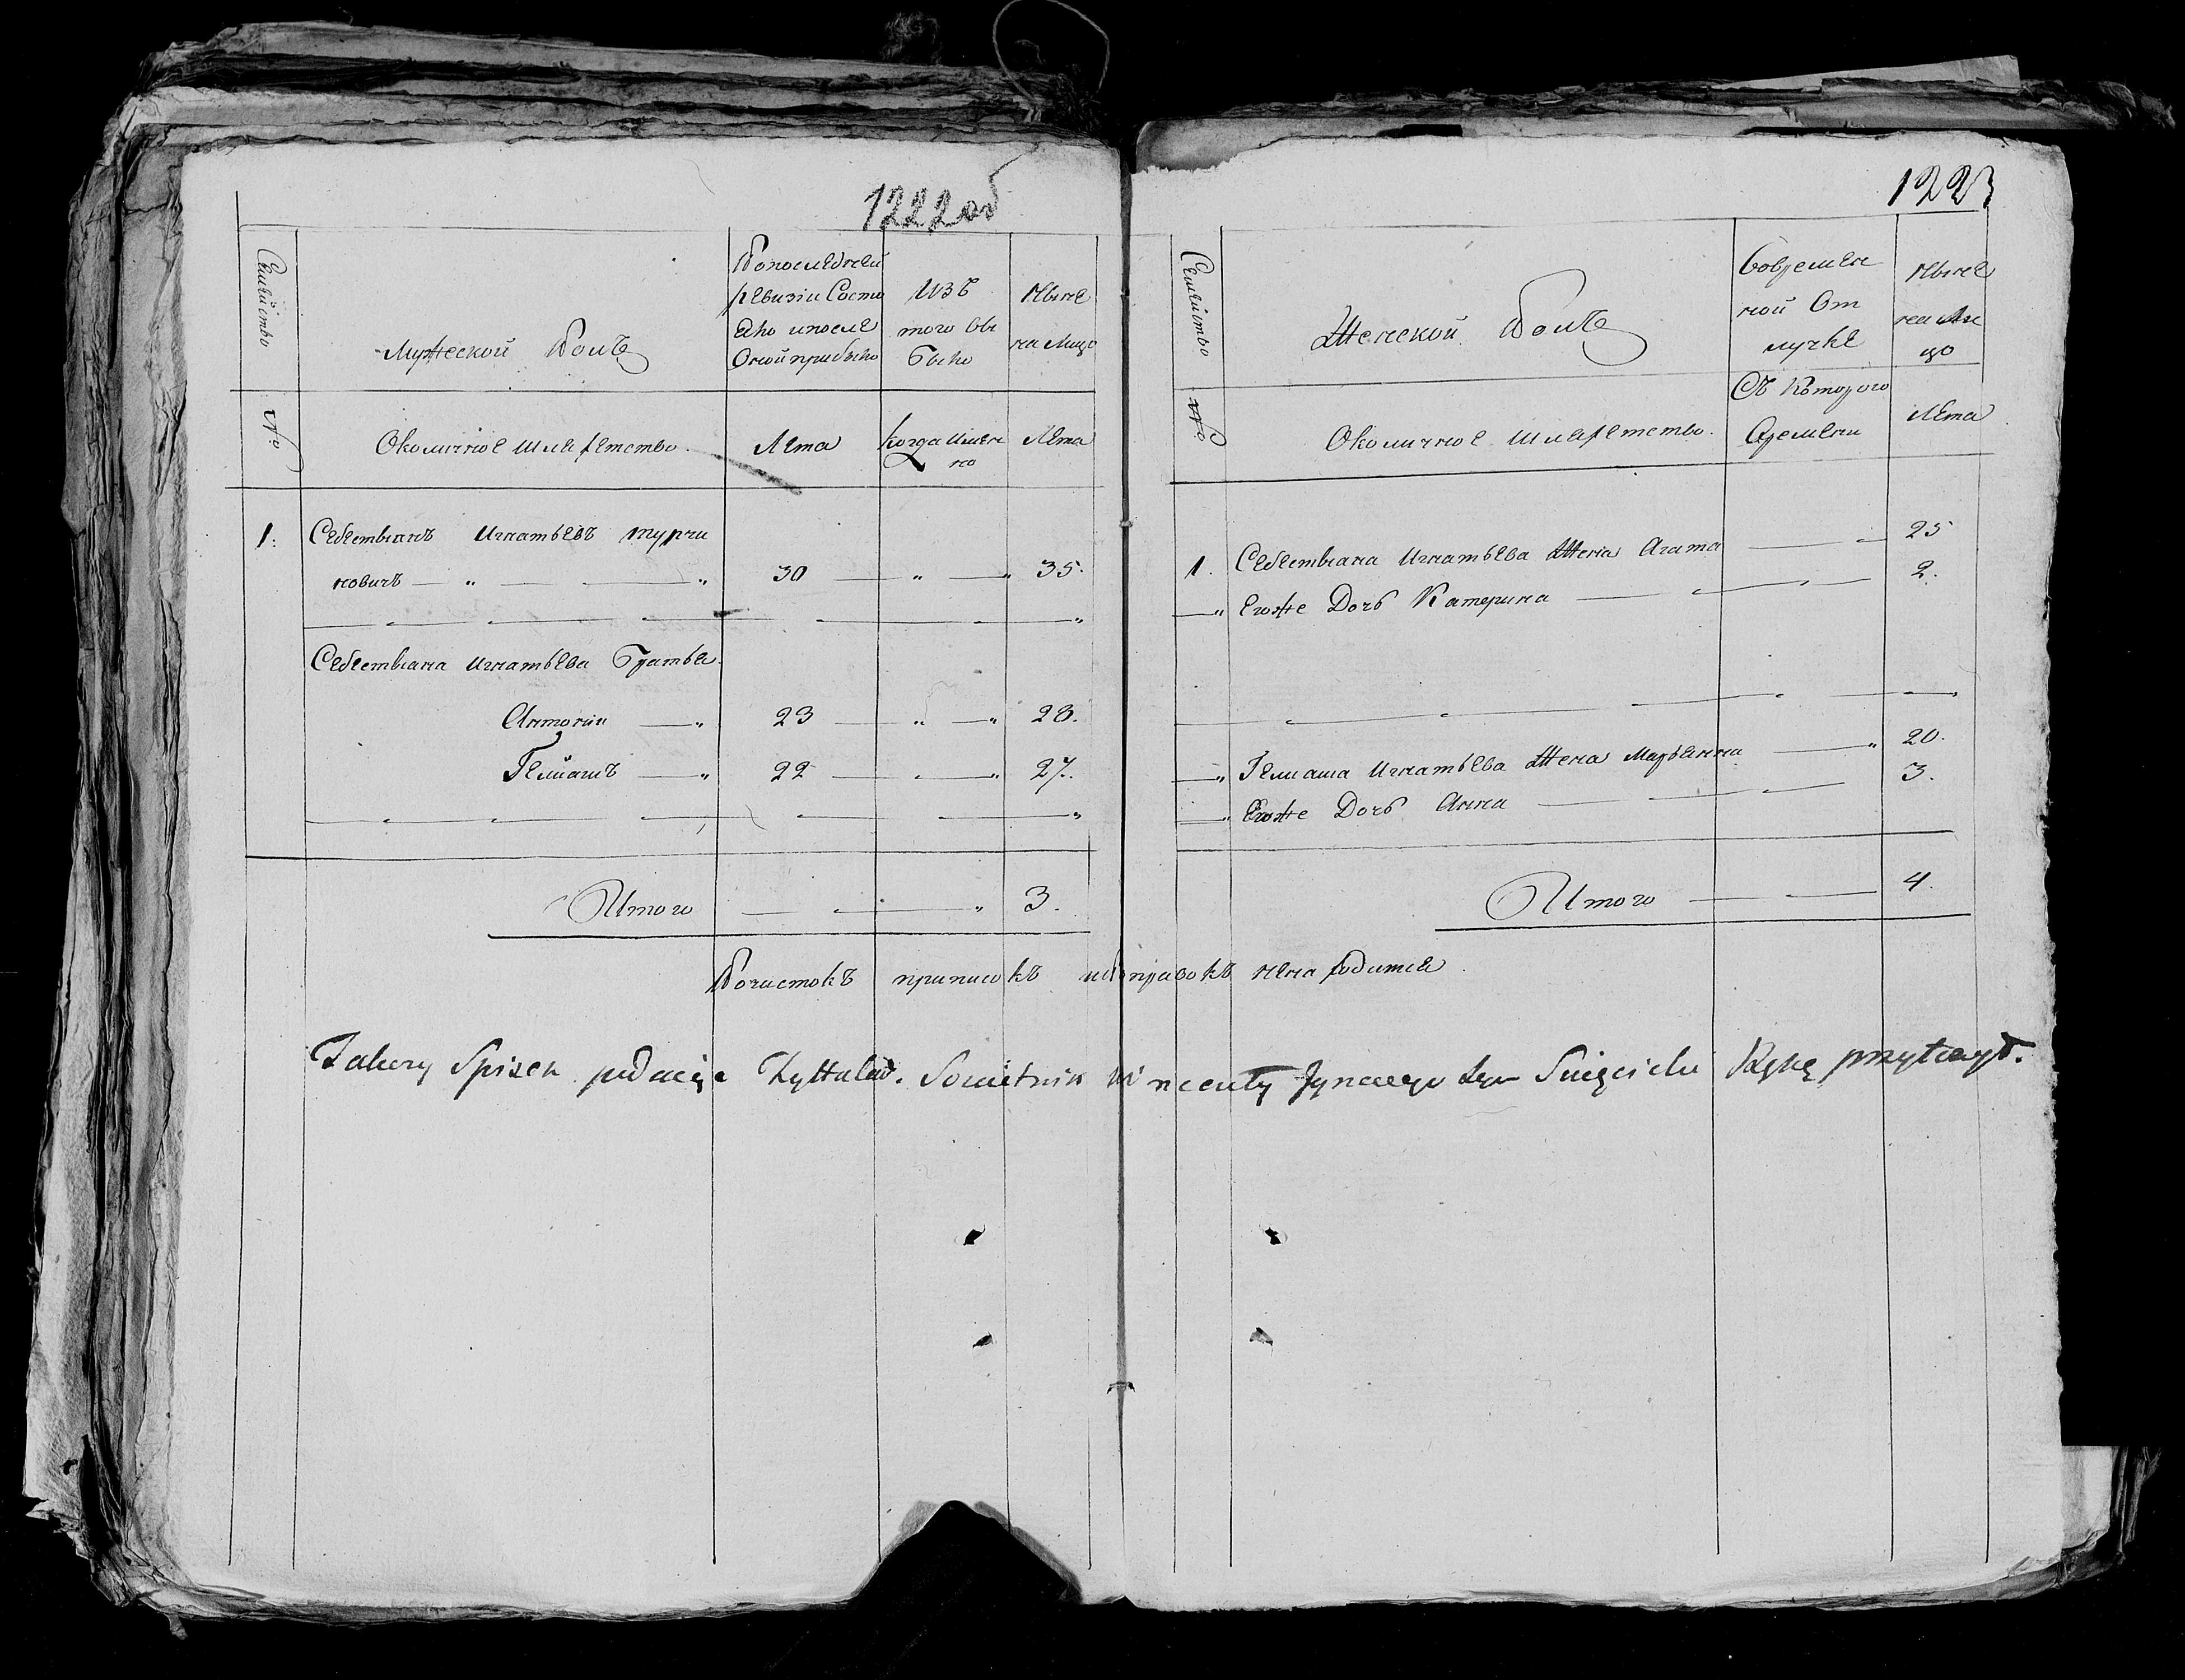 1222об
Семейство
Мужеской Полъ
Вопоследней
ревизіи Состо
яло ипосле
Оной прибыло
Изъ
того Вы
было
Ныне
на лицо
№
Околичное шляхетство.
Лета
когда имен
но
Лета
1. Себестьянъ Игнатьевъ турчи
новичъ 30 35.
Себестьяна Игнатьева Братья.
Антоній 23 28.
Гелиашъ 22 27.
Итого 3.
1223
Семейство
Женской Полъ
Вовремен
ной От
лучке
Ныне
на Ли
цо
№
Околичное шляхетство.
Съ Которого
Времени
Лета
1. Себестьяна Игнатьева Жена Агата 25
Егоже Дочь Катерина 2.
Гелиаша Игнатьева Жена Марьянна 20.
Егоже Дочь Анна 3.
Итого 4.
Почистокъ приписокъ ипоправокъ ненаходится.
Takowy Spisek podający Tyttular. Sowietnik Wincenty Jgnacego Syn Święcicki Rękę przyłożył.